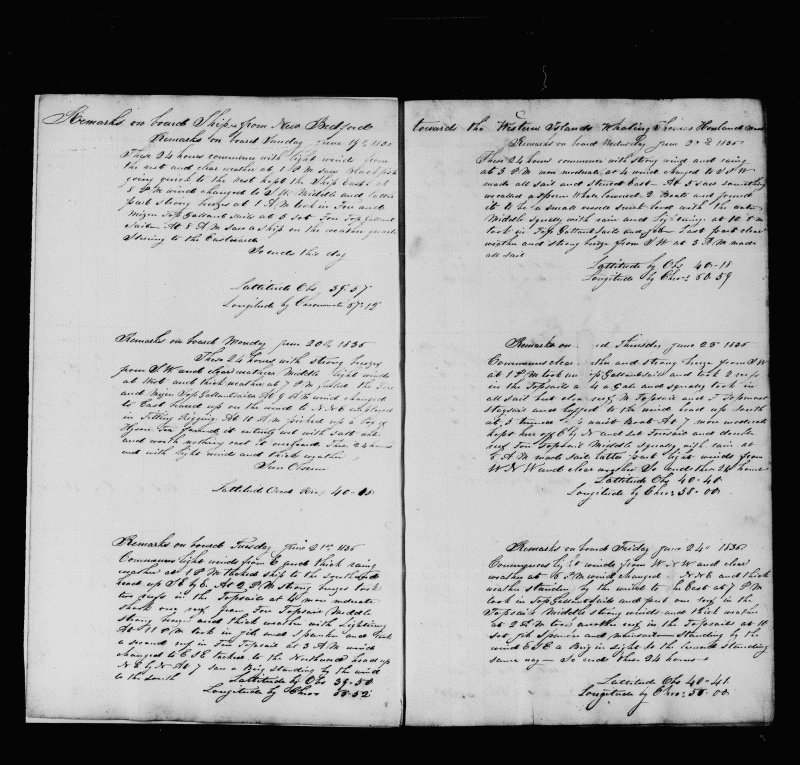 Remarks on board Ship from New Bedford
Remarks on board Sunday June 19th 1836
These 24 hours commence with light winds from
the west and clear weather at 1 P M saw
going quick to the west kept the Ship East at
8 P M wind changed to S W Middle and latter
part strong breezes at 1 A M took in Fore and
Mizen Top Gallant Sails at 5 set Fore Top Gallant
Sail At 8 A M saw a Ship on the weather quarter
Steering to the Eastward
So ends this day
Lattitude Obs 39-37
Longitude by Chronometer 57-12
Remarks on board Monday June 20th 1836
These 24 hours with strong breezes
from S W and clear weather Middle light winds
at West and thick weather at 7 P M furled the Fore
and Mizen Top Gallantsails At 9 A M wind changed
to East hauled up on the wind to N N E employed
in fitting Rigging At 10 A M picked up a Top of
Ten found it entirely wet with salt water
and worth nothing cast it overboard These 24 hours
end with light winds and thick weather
Lattitude 40-15
Remarks on board Tuesday June 21st 1836
Commences light winds from E and thick rainy
weather at 1 P M tacked ship to the South
head up S E by E At 2 P M strong breezes took
two reefs in the Topsails at 4 more moderate
shook one reef from Fore Topsail Middle
strong breezes and thick weather with Lightning
At 11 P M took in jib and Spanker and took
a second reef in Fore Topsail at 3 A M wind
changed to E S E tacked to the Northward head up
N E by N At 7 saw a Brig standing by the wind
to the South
Lattitude by Obs 39-50
Longitude by Chro 58-52
towards the Western Islands Whaling Thomas Howland
Remarks on board Wednesday June 22d 1836
These 24 hours commences with strong wind and raing
at 3 P M more moderate at 4 wind changed to S S W
made all sail and steered East At 5 saw something
we called a Sperm Whale lowered 2 Boats and found
it to be a small vessels level with the water
Middle squally with rain and Lightning at 10 P M
took in Top Gallant Sails and jib Last part clear
weather and strong breeze from S W at 3 A M made
all sail
Lattitude by Obs 40-18
Longitude by Chro 56-59
Remarks on Thursday June 23d 1836
Commences clear and strong breeze from S W
at 1 P M took in Gallantsails and took 2 reefs
in the Topsails at 4 a gale and squally took in
all sail but close reef M Topsail and F Topmast
Staysail and luffed to the wind head up South
at 5 waist Boat At 7 more moderate
kept her off E by N and set Foresail and double
reef Fore Topsail Middle squally with rain at
5 A M made sail latter part light winds from
W N W and clear weather So ends these 24 hours
Lattitude by Obs 40-40
Longitude by Chro 53-00
Remarks on board Friday June 24th 1836
Commences light winds from W N W and clear
weather at 6 P M wind changed N N E and thick
weather standing by the wind to the East at 7 P M
took in Top Gallant Sails and put one reef in the
Topsails Middle strong winds and thick weather
at 2 A M took another reef in the Topsails at 10
set jib Spanker and mainsail Standing by the
wind E S E a Brig in sight to the Leeward standing
same way So ends these 24 hours
Lattitude Obs 40-41
Longitude by Chro 50-00